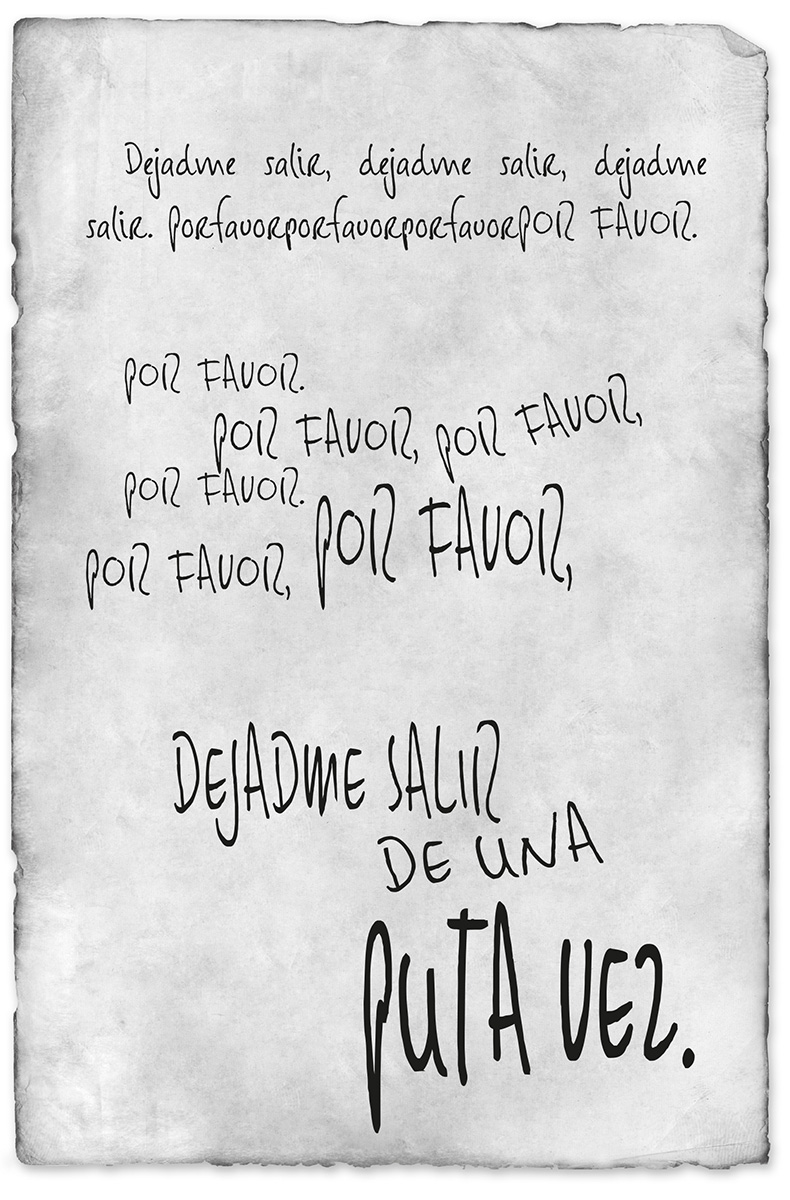 Dejadme salir, dejadme salir, dejadme
salir. porfavorporfavorporfavorPOR FAVOR.
POR FAVOR.
POR FAVOR, POR FAVOR,
POR FAVOR.
POR FAVOR, POR FAVOR,
DEJADME SALIR
DE UNA
PUTA VEZ.